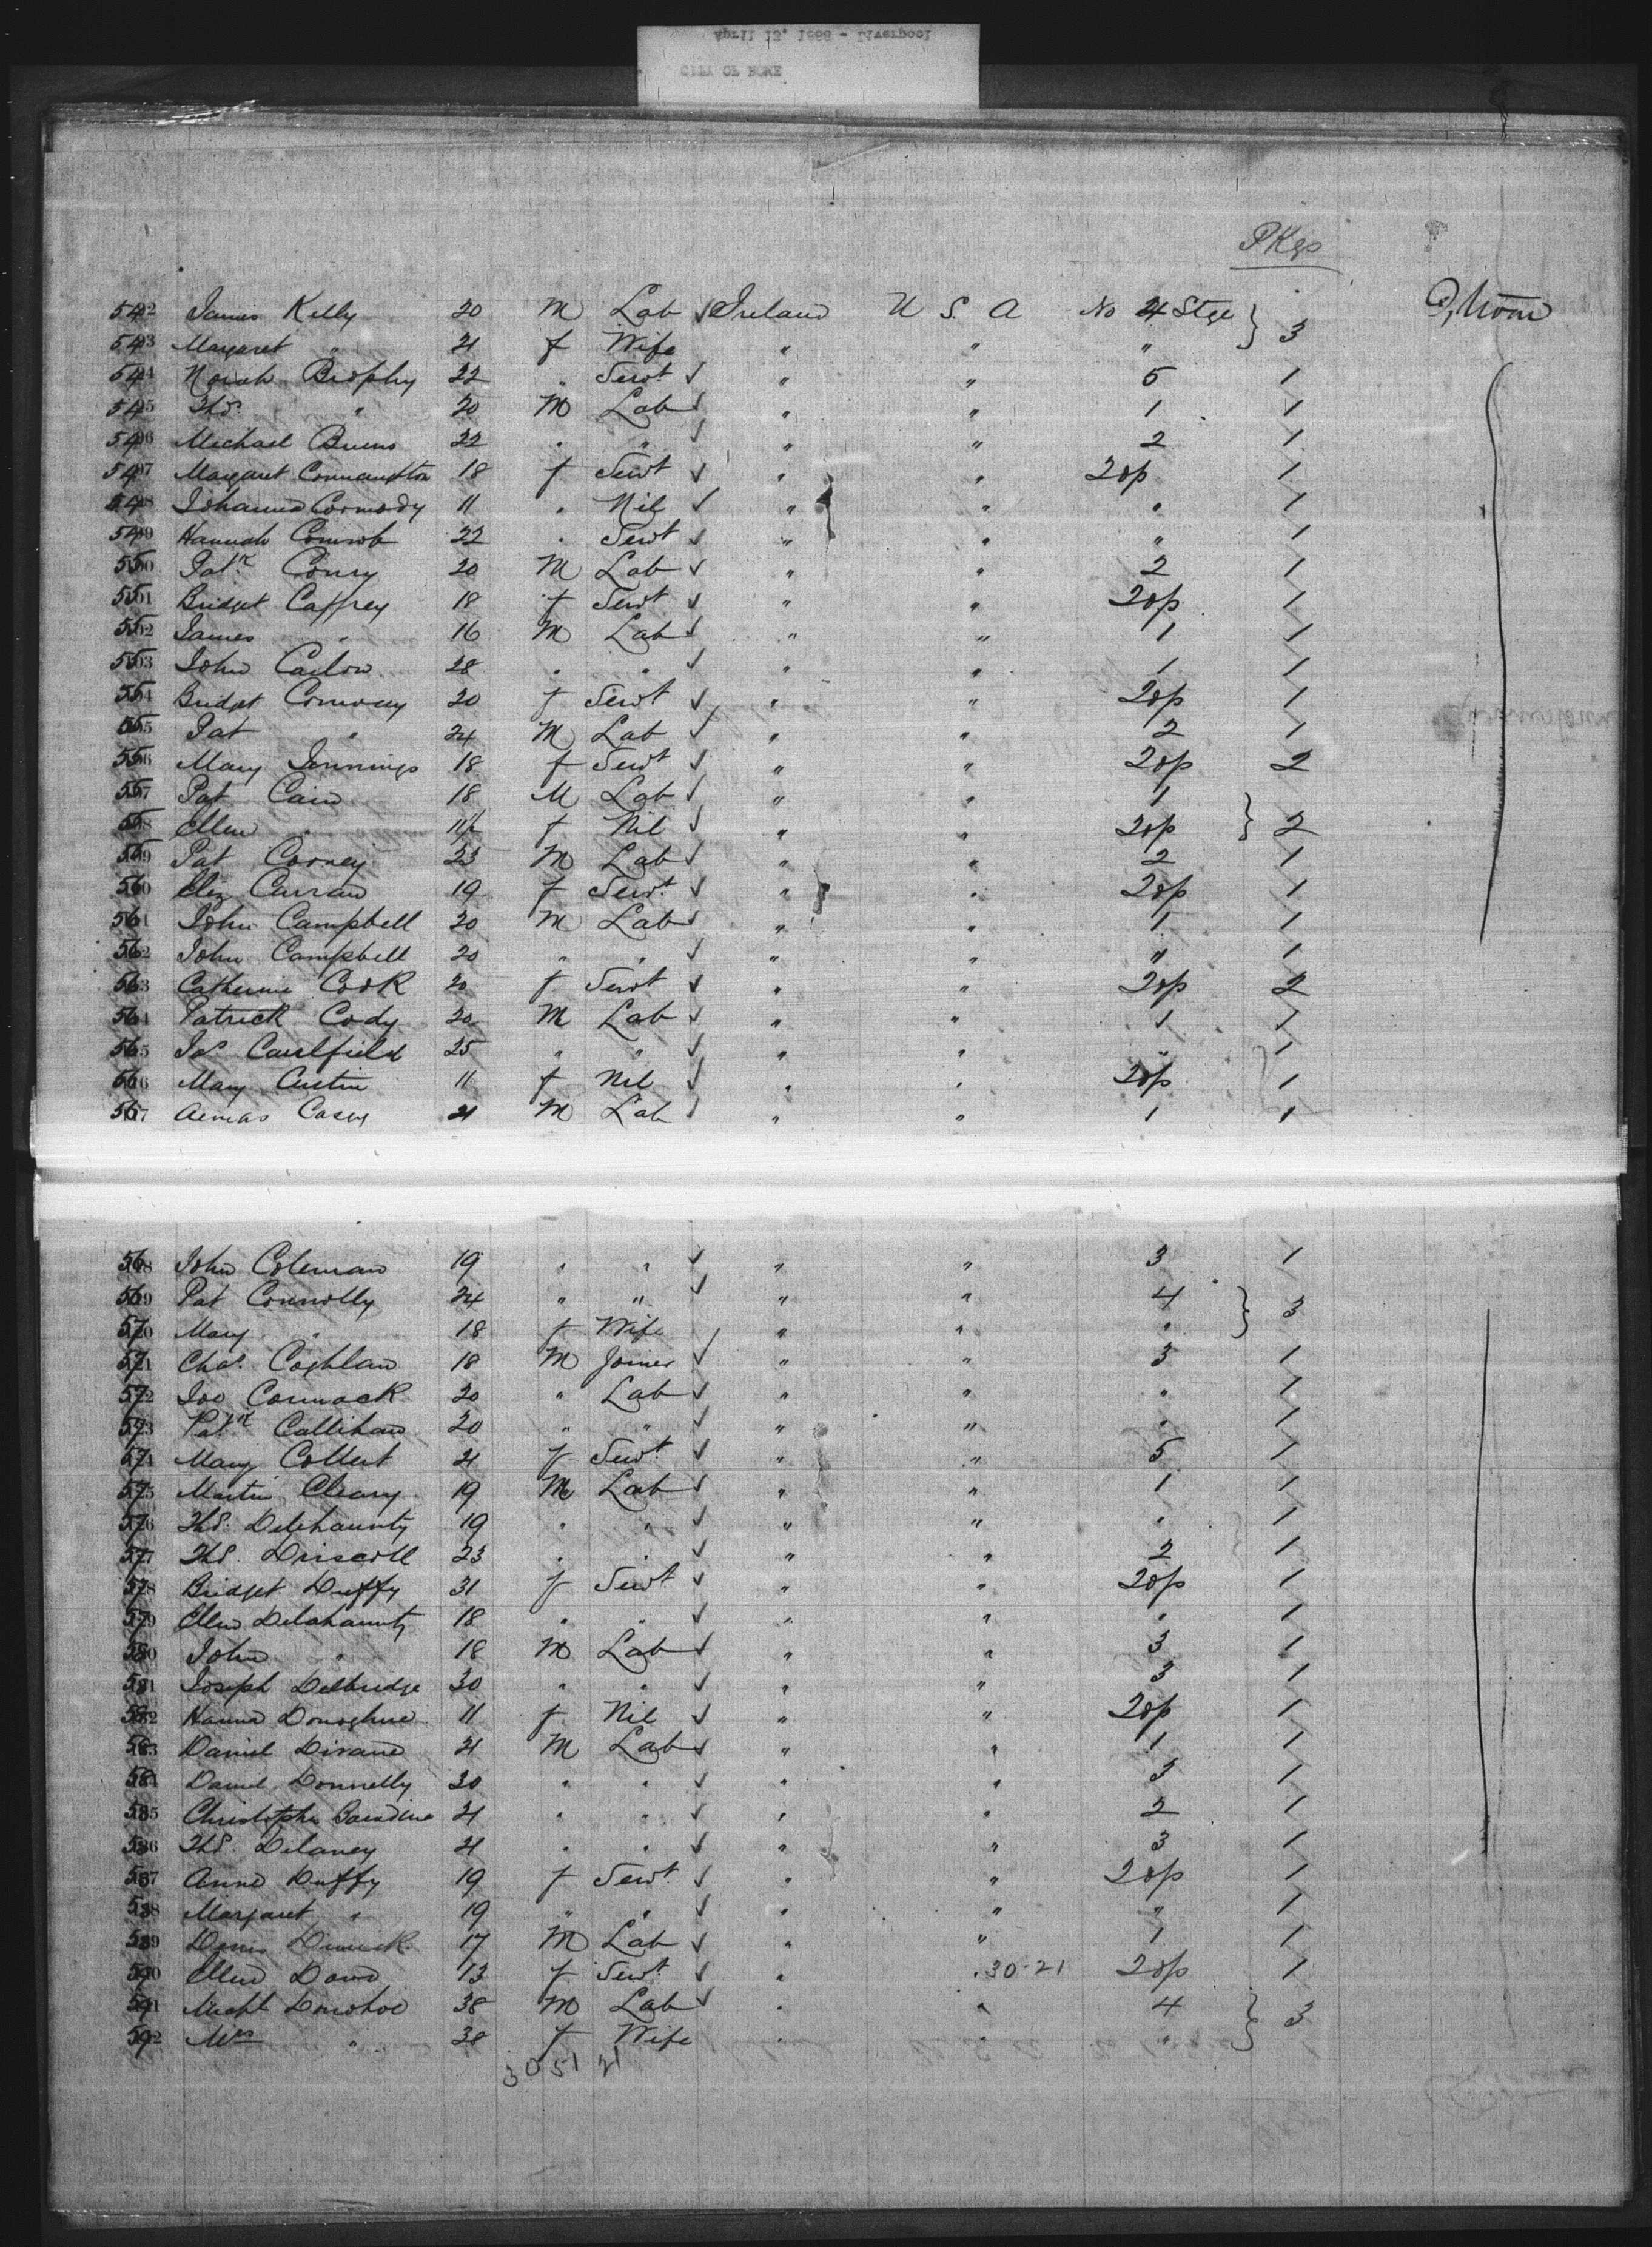 April 13, 1888 - Liverpool
CITY OF ROME
PKgs
542 James Kelly 20 M Lab ✓ Ireland U S A No 4 Stge } 3
543 Margaret " 21 f Wife " " "
544 Norah Brophy 22 " Servt ✓ " " 5 1
545 Thos. " 20 M Lab ✓ " " 1 1
546 Michael Burns 22 " " ✓ " " 2 1
547 Margaret 18 f Servt ✓ " " 20p 1
548 Johanna Cormody 11 " Nil ✓ " " " 1
549 Hannah 22 " Servt ✓ " " " 1
550 Patk Conry 20 M Lab ✓ " " 2 1
551 Bridget Caffrey 18 f Servt ✓ " " 20p 1
552 James " 16 M Lab ✓ " " 1 1
553 John Carlow 28 " " ✓ " " 1 1
554 Bridget Conway 20 f Servt ✓ " " 20p 1
555 Pat " 24 M Lab ✓ " " 2 1
556 Mary Jennings 18 f Servt ✓ " " 20p 2
557 Pat Cain 18 M Lab ✓ " " 1
558 Ellen " 11½ f Nil ✓ " " 20p } 2
559 Pat Corney 23 M Lab ✓ " " 2 1
560 Eliz Curran 19 f Servt ✓ " " 20p 1
561 John Campbell 20 M Lab ✓ " " 1 1
562 John Campbell 20 " " ✓ " " " 1
563 Catherine Cook 20 f Servt ✓ " " 20p 2
564 Patrick Cody 20 M Lab ✓ " " 1 1
565 Jas. Caulfield 25 " " ✓ " " " 1
566 Mary Austin 11 f Nil ✓ " " 20p 1
567 Aeneas Casey 21 M Lab ✓ " " 1 1
568 John Coleman 19 " " ✓ " " 3 1
569 Pat Connolly 24 " " ✓ " " 4 } 3
570 Mary " 18 f Wife " " "
571 Chas. Coghlan 18 M Joiner ✓ " " 3 1
572 Joo Cormack 20 " Lab ✓ " " " 1
573 Patk Callihan 20 " " ✓ " " " 1
574 Mary Collert 21 f Servt ✓ " " 5 1
575 Martin Cleary 19 M Lab ✓ " " 1 1
576 Thos. Delehaunty 19 " " ✓ " " " 1
577 Thos. Driscoll 23 " " ✓ " " 2 1
578 Bridget Duffy 31 f Servt ✓ " " 20p 1
579 Ellen Delahaunty 18 " " ✓ " " " 1
580 John " 18 M Lab ✓ " " 3 1
581 Joseph Delbridge 30 " " ✓ " " 3 1
582 Hanna Donoghue 11 f Nil ✓ " " 20p 1
583 Daniel Divane 21 M Lab ✓ " " 1 1
584 Daniel Donnelly 20 " " ✓ " " 3 1
585 Christopher 21 " " ✓ " " 2 1
586 Thos. Delaney 21 " " ✓ " " 3 1
587 Anne Duffy 19 f Servt ✓ " " 20p 1
588 Margaret " 19 " " ✓ " " " 1
589 Denis 17 M Lab ✓ " " 1 1
590 Ellen 13 f Servt ✓ " " 30-21 20p 1
591 Michl Donohoe 38 M Lab ✓ " " 4 } 3
592 Mrs " 38 f Wife " " "
30 51 21